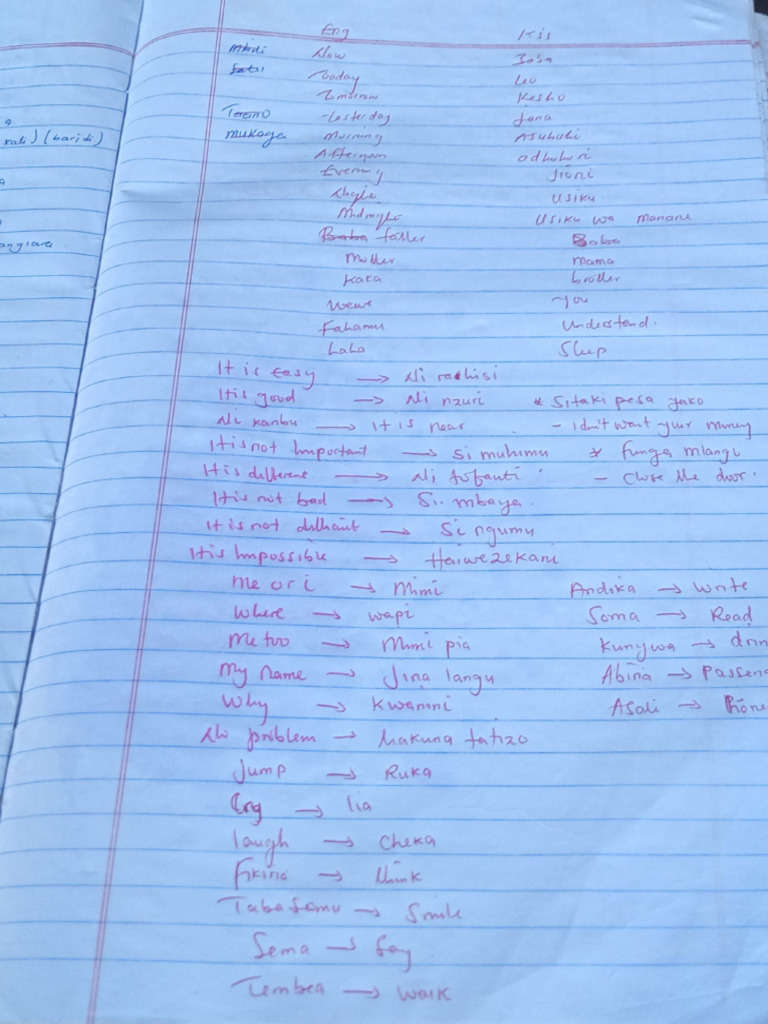 Eng Kis
Now Sasa
Today Leo
Tomorrow Kesho
Tereno Yesterday Jana
mukaga Morning Asubuhi
Afternoon adhuhuri
Evening Jioni
Night usiku
Midnight usiku wa manane
father Baba
Mother mama
Kaka brother
Wewe You
Fahamu understand.
Lala Sleep
It is easy → Ni rahisi
It is good → Ni nzuri * Sitaki pesa yako
Ni karibu → It is near - I don't want your money
It is not Important → si muhimu * funga mlango
It is different → Ni tofauti - Close the door.
It is not bad → Si mbaya.
It is not → Si ngumu
It is Impossible → Haiwezekani
Me or i → Mimi Andika → Write
Where → wapi Soma → Read
Me too → Mimi pia Kunywa →
My name → Jina langu Abiria →
Why → Kwanini Asali →
No problem → hakuna tatizo
Jump → Ruka
→ lia
laugh → Cheka
Fikiria → think
Tabasamu → Smile
Sema → Say
Tembea → walk
rati) (baridi)